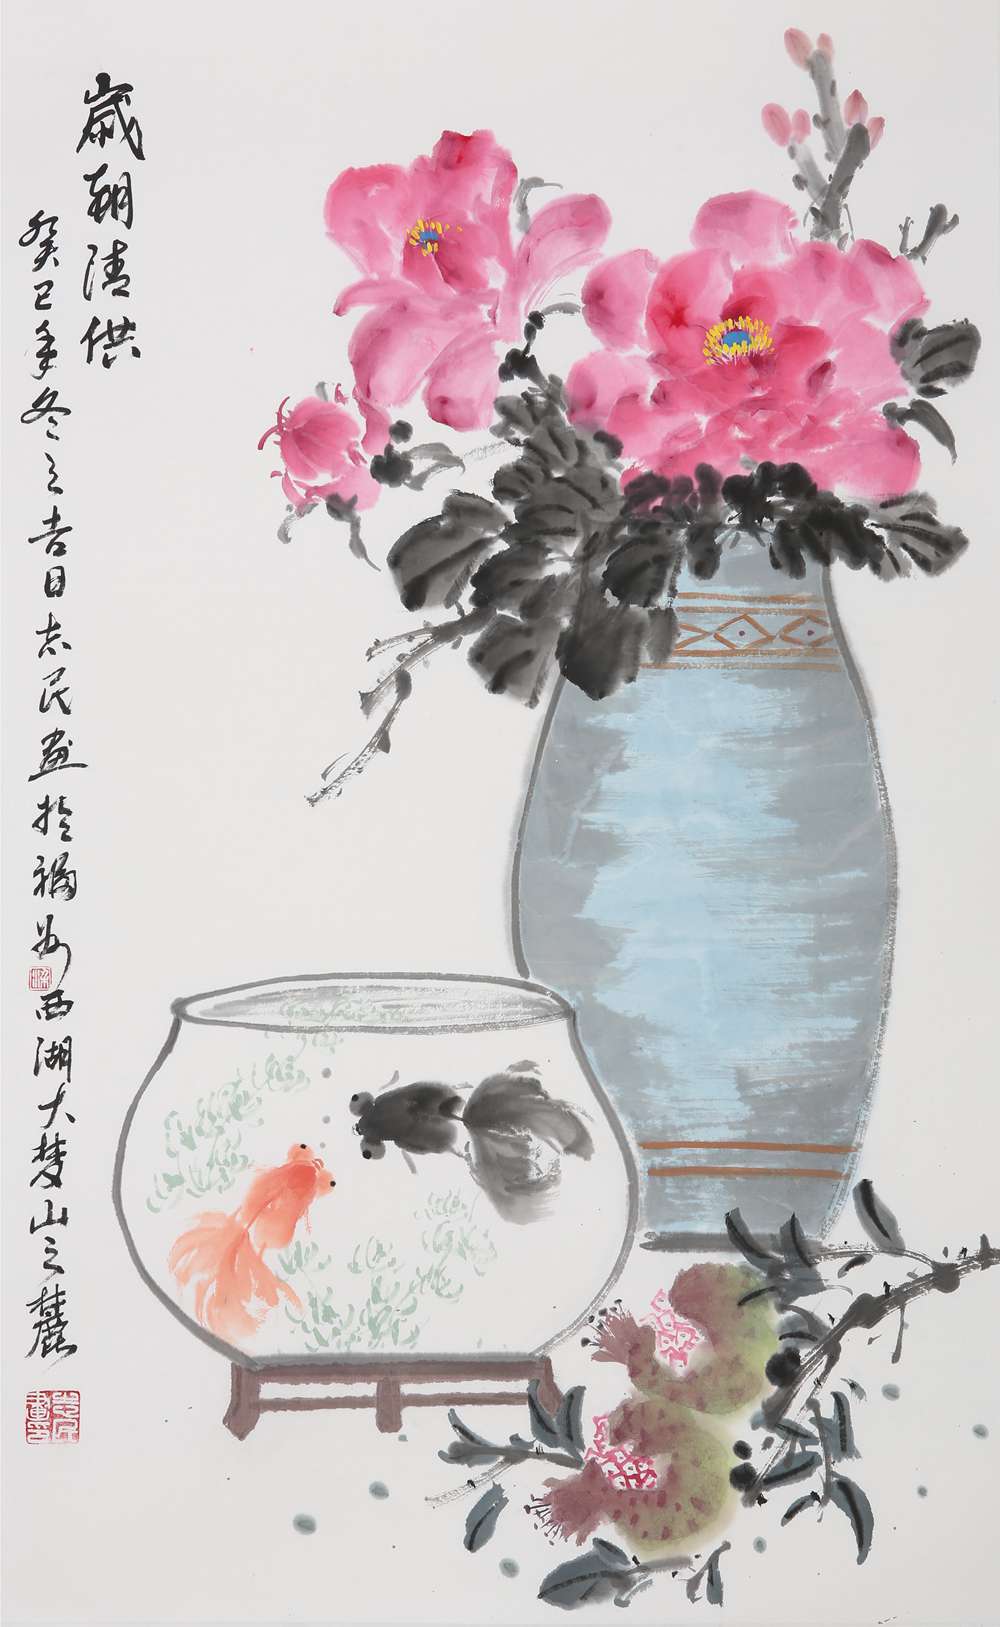 歲朝清供
癸巳年冬之吉日志民畫於福州西湖大夢山之麓
志民畫印